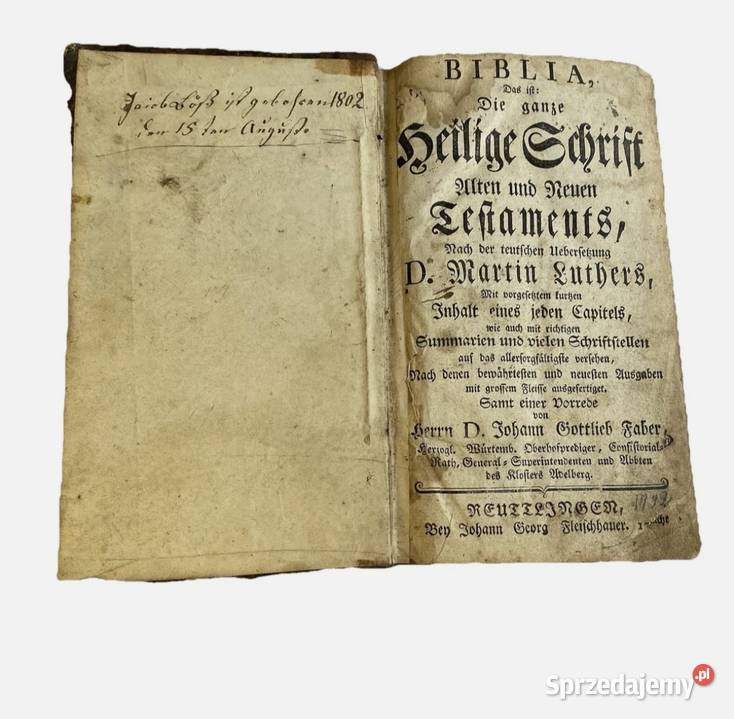 Jacob Löß ist gebohren 1802
den 15ten August.
BIBLIA,
Das ist:
Die ganze
Heilige Schrift
Alten und Neuen
Testaments,
Nach der teutschen Uebersetzung
D. Martin Luthers,
Mit vorgesetztem kurtzen
Inhalt eines jeden Capitels,
wie auch mit richtigen
Summarien und vielen Schriftstellen
auf das allersorgfältigste versehen,
Nach denen bewährtesten und neuesten Ausgaben
mit grossem Fleisse ausgefertiget.
Samt einer Vorrede
von
Herrn D. Johann Gottlieb Faber,
Herzogl. Würtemb. Oberhofprediger, Consistorial-
Rath, General-Superintendenten und Abbten
des Klosters Adelberg.
REUTTLINGEN,
Bey Johann Georg Fleischhauer.
Sprzedajemy.pl